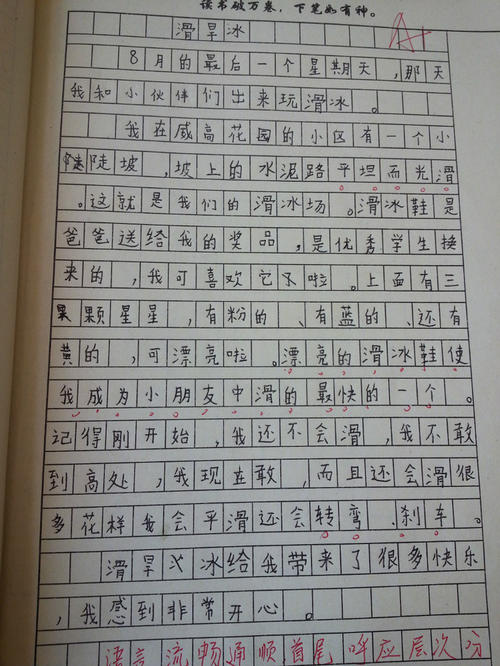 读书破万卷，下笔如有神。
A+
滑旱冰
8月的最后一个星期天，那天
我和小伙伴们出来玩滑冰。
我在咸高花园的小区有一个小
陡坡，坡上的水泥路平坦而光滑
。这就是我们的滑冰场。滑冰鞋是
爸爸送给我的奖品，是优秀学生换
来的，我可喜欢它不啦。上面有三
颗星星，有粉的、有蓝的、还有
黄的，可漂亮啦。漂亮的滑冰鞋使
我成为小朋友中滑的最快的一个。
记得刚开始，我还不会滑，我不敢
到高处，我现在敢，而且还会滑很
多花样我会平滑还会转弯、刹车。
滑旱冰给我带来了很多快乐
，我感到非常开心。
语言流畅通顺，首尾呼应层次分